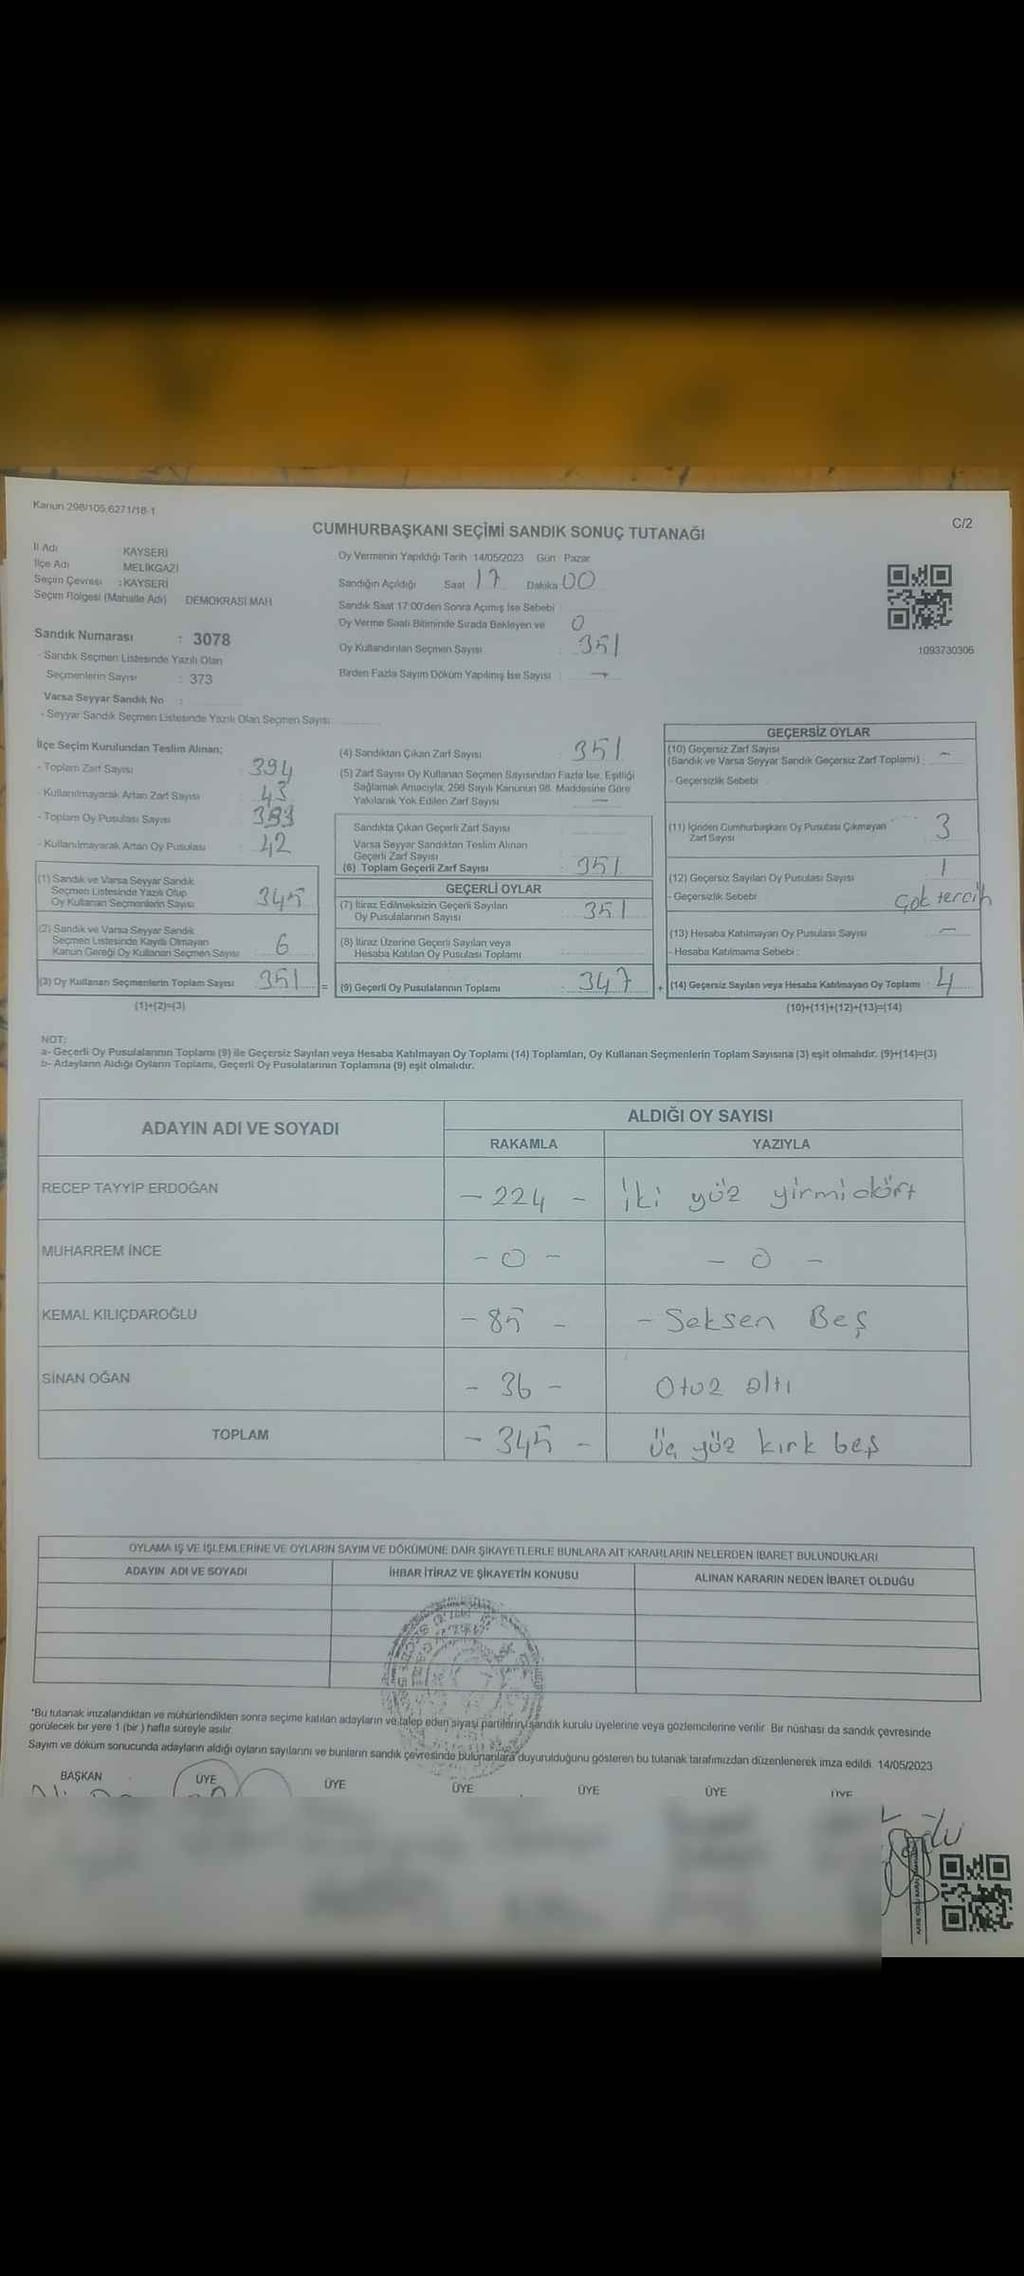 Kanun 298/105,6271/18-1
C/2
CUMHURBAŞKANI SEÇİMİ SANDIK SONUÇ TUTANAĞI
İl Adı KAYSERİ
İlçe Adı MELİKGAZİ
Seçim Çevresi : KAYSERİ
Seçim Bölgesi (Mahalle Adı) DEMOKRASİ MAH
Sandık Numarası : 3078
- Sandık Seçmen Listesinde Yazılı Olan
Seçmenlerin Sayısı : 373
Varsa Seyyar Sandık No :
- Seyyar Sandık Seçmen Listesinde Yazılı Olan Seçmen Sayısı
Oy Vermenin Yapıldığı Tarih 14/05/2023 Gün : Pazar
Sandığın Açıldığı Saat 17 Dakika 00
Sandık Saat 17:00'den Sonra Açılmış İse Sebebi
Oy Verme Saati Bitiminde Sırada Bekleyen ve 0
Oy Kullandırılan Seçmen Sayısı : 351
Birden Fazla Sayım Döküm Yapılmış İse Sayısı : -
1093730306
İlçe Seçim Kurulundan Teslim Alınan;
- Toplam Zarf Sayısı 394
- Kullanılmayarak Artan Zarf Sayısı 43
- Toplam Oy Pusulası Sayısı
- Kullanılmayarak Artan Oy Pusulası 42
(1) Sandık ve Varsa Seyyar Sandık
Seçmen Listesinde Yazılı Olup
Oy Kullanan Seçmenlerin Sayısı 345
(2) Sandık ve Varsa Seyyar Sandık
Seçmen Listesinde Kayıtlı Olmayan
Kanun Gereği Oy Kullanan Seçmen Sayısı 6
(3) Oy Kullanan Seçmenlerin Toplam Sayısı 351 =
(1)+(2)=(3)
(4) Sandıktan Çıkan Zarf Sayısı 351
(5) Zarf Sayısı Oy Kullanan Seçmen Sayısından Fazla İse, Eşitliği
Sağlamak Amacıyla, 298 Sayılı Kanunun 98. Maddesine Göre
Yakılarak Yok Edilen Zarf Sayısı -
Sandıkta Çıkan Geçerli Zarf Sayısı
Varsa Seyyar Sandıktan Teslim Alınan
Geçerli Zarf Sayısı
(6) Toplam Geçerli Zarf Sayısı 351
GEÇERLİ OYLAR
(7) İtiraz Edilmeksizin Geçerli Sayılan
Oy Pusulalarının Sayısı 351
(8) İtiraz Üzerine Geçerli Sayılan veya
Hesaba Katılan Oy Pusulası Toplamı
(9) Geçerli Oy Pusulalarının Toplamı : 347 +
GEÇERSİZ OYLAR
(10) Geçersiz Zarf Sayısı
(Sandık ve Varsa Seyyar Sandık Geçersiz Zarf Toplamı) : -
- Geçersizlik Sebebi
(11) İçinden Cumhurbaşkanı Oy Pusulası Çıkmayan
Zarf Sayısı 3
(12) Geçersiz Sayılan Oy Pusulası Sayısı 1
- Geçersizlik Sebebi Çok tercih
(13) Hesaba Katılmayan Oy Pusulası Sayısı -
- Hesaba Katılmama Sebebi :
(14) Geçersiz Sayılan veya Hesaba Katılmayan Oy Toplamı : 4
(10)+(11)+(12)+(13)=(14)
NOT:
a- Geçerli Oy Pusulalarının Toplamı (9) ile Geçersiz Sayılan veya Hesaba Katılmayan Oy Toplamı (14) Toplamları, Oy Kullanan Seçmenlerin Toplam Sayısına (3) eşit olmalıdır. (9)+(14)=(3)
b- Adayların Aldığı Oyların Toplamı, Geçerli Oy Pusulalarının Toplamına (9) eşit olmalıdır.
ADAYIN ADI VE SOYADI ALDIĞI OY SAYISI
RAKAMLA YAZIYLA
RECEP TAYYİP ERDOĞAN - 224 - iki yüz yirmi dört
MUHARREM İNCE - 0 - - 0 -
KEMAL KILIÇDAROĞLU - 85 - - Seksen Beş
SİNAN OĞAN - 36 - Otuz altı
TOPLAM - 345 - üç yüz kırk beş
OYLAMA İŞ VE İŞLEMLERİNE VE OYLARIN SAYIM VE DÖKÜMÜNE DAİR ŞİKAYETLERLE BUNLARA AİT KARARLARIN NELERDEN İBARET BULUNDUKLARI
ADAYIN ADI VE SOYADI İHBAR İTİRAZ VE ŞİKAYETİN KONUSU ALINAN KARARIN NEDEN İBARET OLDUĞU
*Bu tutanak imzalandıktan ve mühürlendikten sonra seçime katılan adayların ve talep eden siyasi partilerin sandık kurulu üyelerine veya gözlemcilerine verilir. Bir nüshası da sandık çevresinde
görülecek bir yere 1 (bir) hafta süreyle asılır.
Sayım ve döküm sonucunda adayların aldığı oyların sayılarını ve bunların sandık çevresinde bulunanlara duyurulduğunu gösteren bu tutanak tarafımızdan düzenlenerek imza edildi. 14/05/2023
BAŞKAN ÜYE ÜYE ÜYE ÜYE ÜYE ÜYE